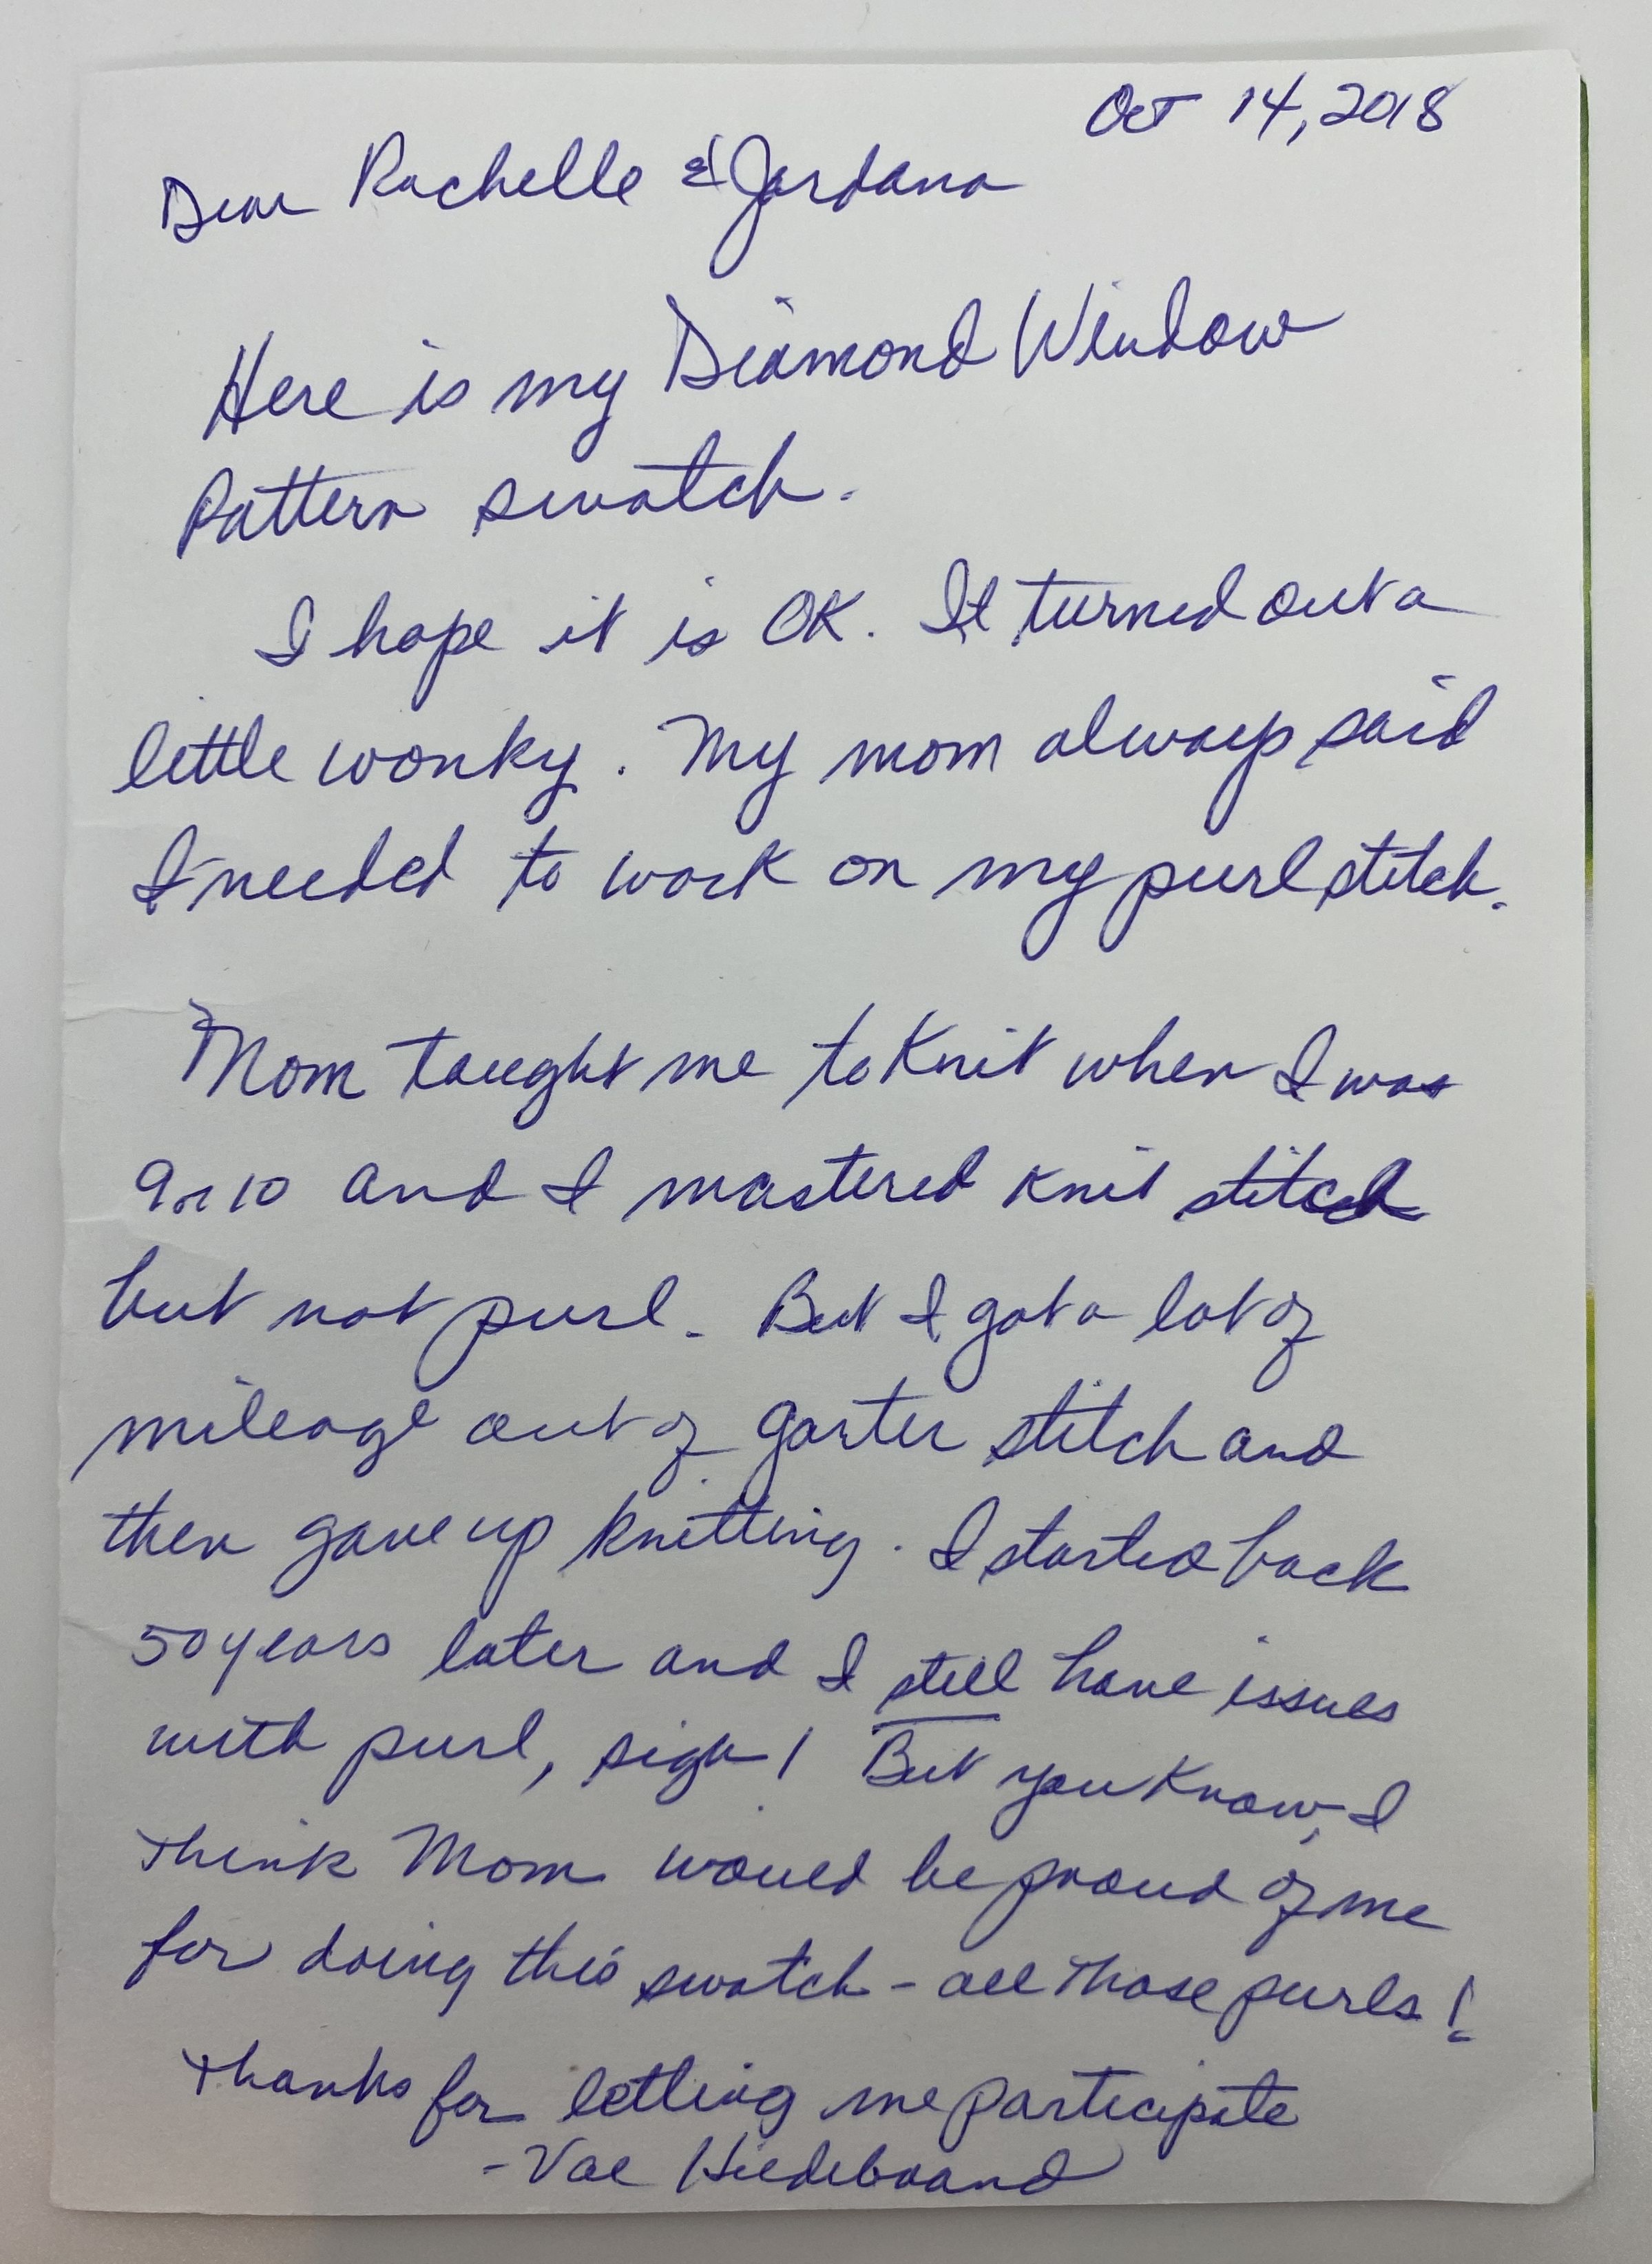 Oct 14, 2018
Dear Rachelle & Jordana
Here is my Diamond Window
Pattern swatch.
I hope it is OK. It turned out a
little wonky. My mom always said
I needed to work on my purl stitch.
Mom taught me to knit when I was
9 or 10 and I mastered knit stitch
but not purl. But I got a lot of
mileage out of garter stitch and
then gave up knitting. I started back
50 years later and I still have issues
with purl, sigh! But you know, I
think Mom would be proud of me
for doing this swatch - all those purls!
Thanks for letting me participate
- Val Hildebrand